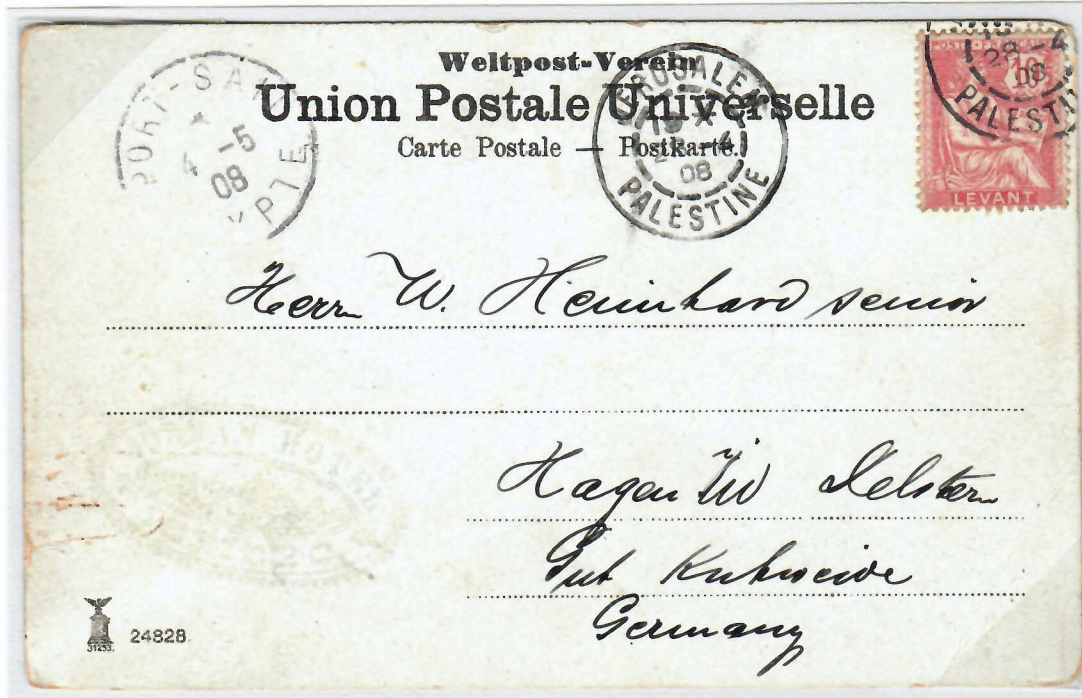 Weltpost-Verein
Union Postale Universelle
Carte Postale — Postkarte.
PORT-SAI
4 -5
08
YPTE
JERUSALEM
-4
08
PALESTINE
28 -4
08
PALESTI
10
LEVANT
Herrn W. Heminhard senior
Hagen i/W Delstern
Gut Kuhweide
Germany
31253.
24828